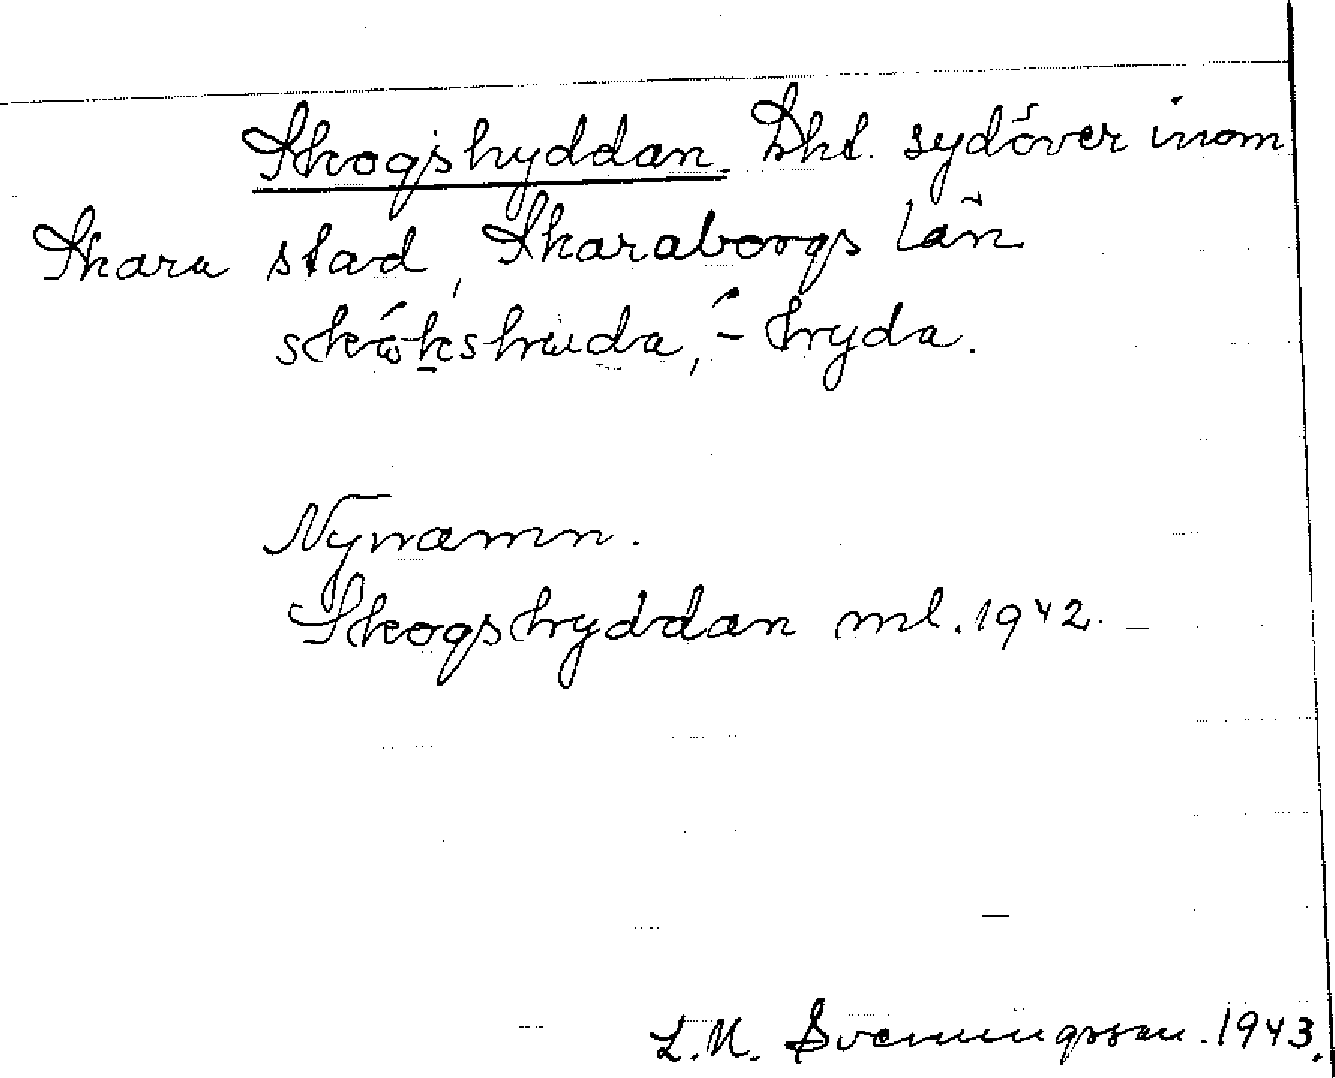 Skogshyddan. Lht. sydöver inom
Skara stad, Skaraborgs län
skókshuda, -́ hyda.
Nynamn.
Skogshyddan ml. 1942.
L.M. Svenningsson. 1943.